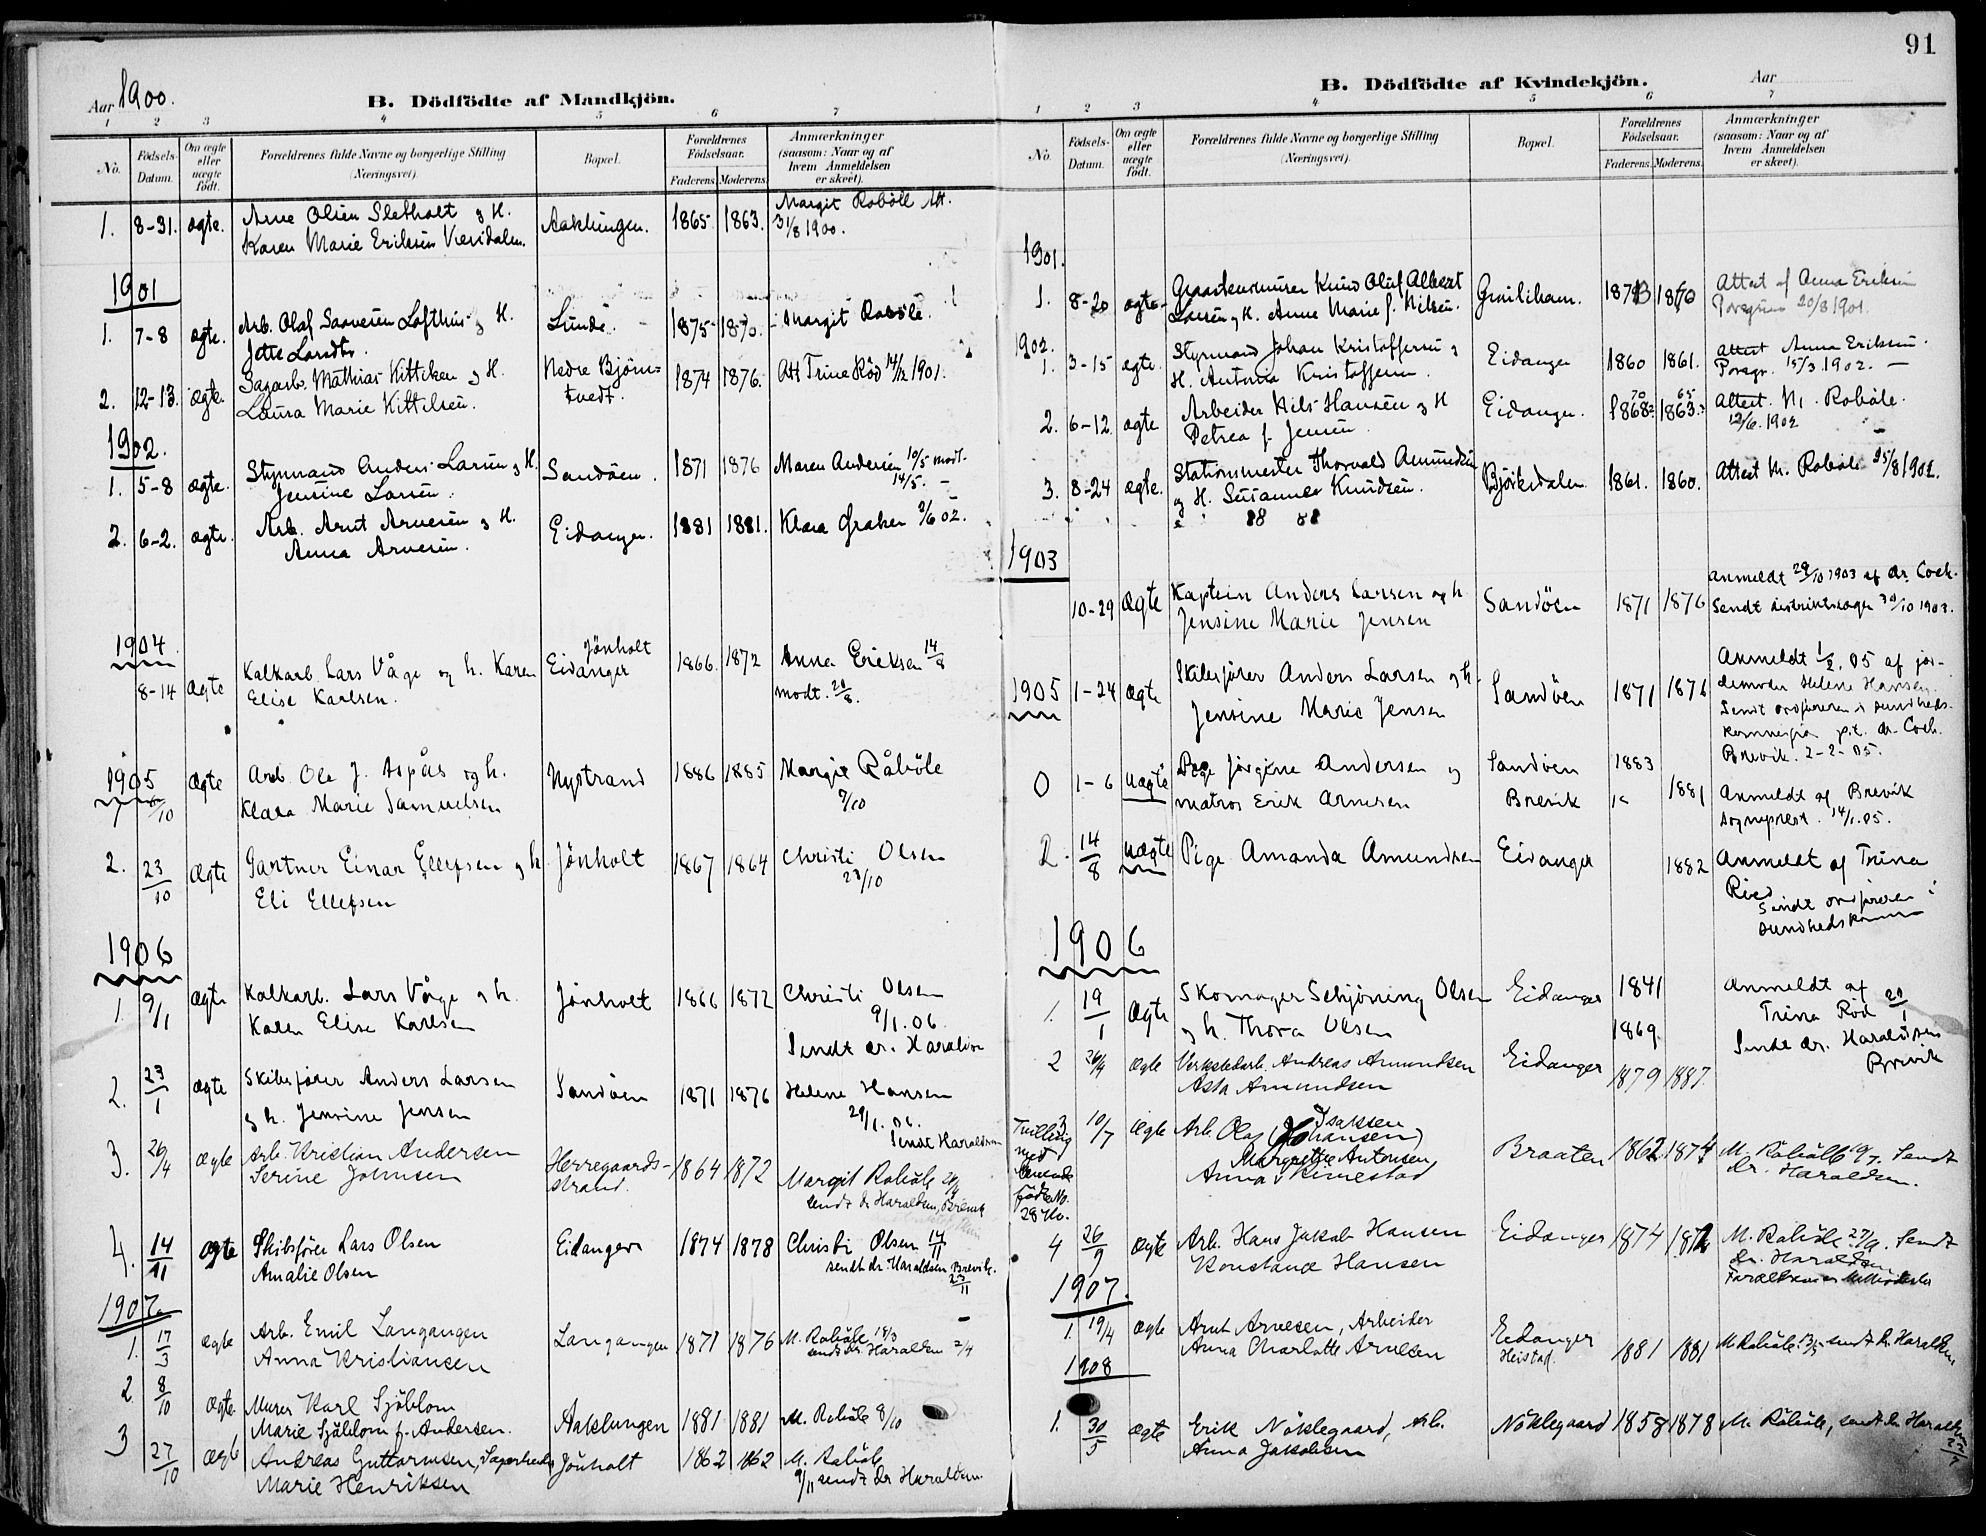 91
Aar 1900.
B. Dödfödte af Mandkjön.
1 2 3 4 5 6 7
No.
Födsels-
Datum.
Om ægte
eller
uægte
födt.
Forældrenes fulde Navne og borgerlige Stilling
(Næringsvei).
Bopæl.
Forældrenes
Födselsaar.
Faderens. Moderens.
Anmærkninger
(saasom: Naar og af
hvem Anmeldelsen
er skeet).
1. 8-31. ægte. Arne Olsen Sletholt og H. Aaklungen. 1865 1863. Margit Raböle Att.
Karen Marie Eriksen 31/8 1900.
1901
1. 7-8 ægte. Arb. Olaf Saavesen Lofthus og H. Lunde. 1875 1870. Margit Raböle.
Jette
2. 12-13. ægte. Sagarb. Mathias Kittilsen og H. Nedre Bjørn- 1874 1876. Att Trine Röd 14/12 1901.
Laura Marie Kittilsen. tvedt.
1902.
1. 5-8 ægte. Styrmand Anders Larsen og H. Sandöen. 1871 1876 Maren Andersen 10/5 modt.
Jensine Larsen. 14/5.
2. 6-2. ægte. Arb. Arnt Arnesen og H. Eidanger. 1881 1881. Klara Graker 2/6 02.
Anna Arnesen.
1904
Jönholt
8-14 ægte Kalkarb. Lars Våge og h. Karen Eidanger 1866. 1872 Anna Eriksen 14/8
Elise Karlsen. modt. 20/8.
1905
1 8/10 ægte Arb. Ole J. Aspås og h. Nystrand 1886 1885 Margit Råböle
Klara Marie Samuelsen 9/10
2. 23/10 ægte Gartner Einar Ellefsen og h. Jönholt 1867 1864 Christi Olsen
Eli Ellefsen 23/10
1906
1. 9/1 ægte Kalkarb. Lars Våge og h. Jönholt 1866 1872 Christi Olsen
Karen Elise Karlsen 9/1.06.
Sendt dr. Haraldsen
2. 23/1 ægte Skibsfører Anders Larsen Sandöen 1871 1876 Helene Hansen
og h. Jensine Jensen 29/1.06.
Sendt Haraldsen
3. 26/4 ægte Arb. Kristian Andersen Herregaards- 1864 1872 Margit Raböle
Serine Johnsen strand. sendt dr Haraldsen, Brevik
4. 14/11 ægte Skibsfører Lars Olsen Eidanger 1874 1878 Christi Olsen 14/11
Amalie Olsen sendt dr. Haraldsen Brevik.
23/11
1907.
1. 17/3 ægte Arb. Emil Langangen Langangen 1871 1876 M. Raböle 18/3
Anna Kristiansen sendt dr Haraldsen 2/4
2 8/10 ægte. Murer Karl Sjöblom Aaklungen 1881 1881 M. Raböle 8/10
Marie Sjöblom f. Andersen.
3 27/10 ægte Andreas Guttormsen, Jönholt 1862 1862 M. Raböle
Marie Henriksen 9/11 sendt dr Haraldsen
B. Dödfödte af Kvindekjön.
Aar
1 2 3 4 5 6 7
No.
Födsels-
Datum.
Om ægte
eller
uægte
födt.
Forældrenes fulde Navne og borgerlige Stilling
(Næringsvei).
Bopæl.
Forældrenes
Födselsaar.
Faderens. Moderens.
Anmærkninger
(saasom: Naar og af
hvem Anmeldelsen
er skeet).
1901.
1. 8-20 ægte Knud Oluf Albert 1870 Attest af Anna Eriksen
Larsen og H. Anne Marie f. Nilsen. Porsgrun 20/8 1901.
1902.
1. 3-15 ægte. Styrmand Johan Kristoffersen og Eidanger 1860 1861. Attest Anna Eriksen.
H. Antonia Kristoffersen. Porsgr. 15/3 1902.
70 65
2. 6-12 ægte Arbeider Nils Hansen og H Eidanger. 1868 1863. Attest M. Raböle.
Petrea f. Jensen 12/6. 1902
3. 8-24 ægte. Stationsmester Thorvald Amundsen Björkedalen 1861. 1860. Attest M. Raböle 25/8 1902.
og H. Susanne Knudsen.
88 88
1903
10-29 ægte Kaptein Anders Larsen og h. Sandöen 1871 1876 anmeldt 29/10 1903 af dr. Coch.
Jensine Marie Jensen Sendt distriktslæge 30/10 1903.
1905 1-24 ægte Skibsfører Anders Larsen og h. Sandöen 1871 1876 Anmeldt 1/2.05 af jor-
Jensine Marie Jensen demoder Helene Hansen.
Sendt ordføreren i sundheds-
p.t. dr. Coch.
Brevik. 2-2-05.
0 1-6 uægte Pige Jørgine Andersen og Sandöen 1883
matros Erik Arnesen Brevik 1881 Anmeldt af Brevik
sogneprest. 14/1.05.
2. 14/8 uægte Pige Amanda Amundsen Eidanger 1882 Anmeldt af Trine
Röed
Sendt ordføreren i
sundhedskomm
1906
1. 19/1 ægte Skomager Schjöning Olsen Eidanger 1841 Anmeldt af
og h. Thora Olsen 1869. Trine Röd 20/1
Sendt dr. Haraldsen
Brevik
2 26/4 ægte Verkstedarb. Andreas Amundsen Eidanger 1879 1887.
Asta Amundsen
3 10/7 ægte Arb. Olaf Isaksen (Johansen) Braaten 1862 1874 M. Raböle 10/7. Sendt
Tvilling Anna Margrethe Antonsen dr. Haraldsen.
med Rinestad
levende
födte No.
28 Kv.
4 26/9 ægte Arb. Hans Jakob Hansen Eidanger 1874 1872 M. Raböle 27/9. Sendt
Konstance Hansen dr. Haraldsen
1907.
1. 19/4 ægte Arnt Arnesen, Arbeider Eidanger 1881 1881 M Raböle sendt dr. Haraldsen
Anna Charlotte Arnesen Heistad.
1908
1. 30/5 ægte Erik Nöklegaard, Arb. Nöklegaard 1858 1878 M. Raböle, sendt dr Haraldsen
Anna Jakobsen